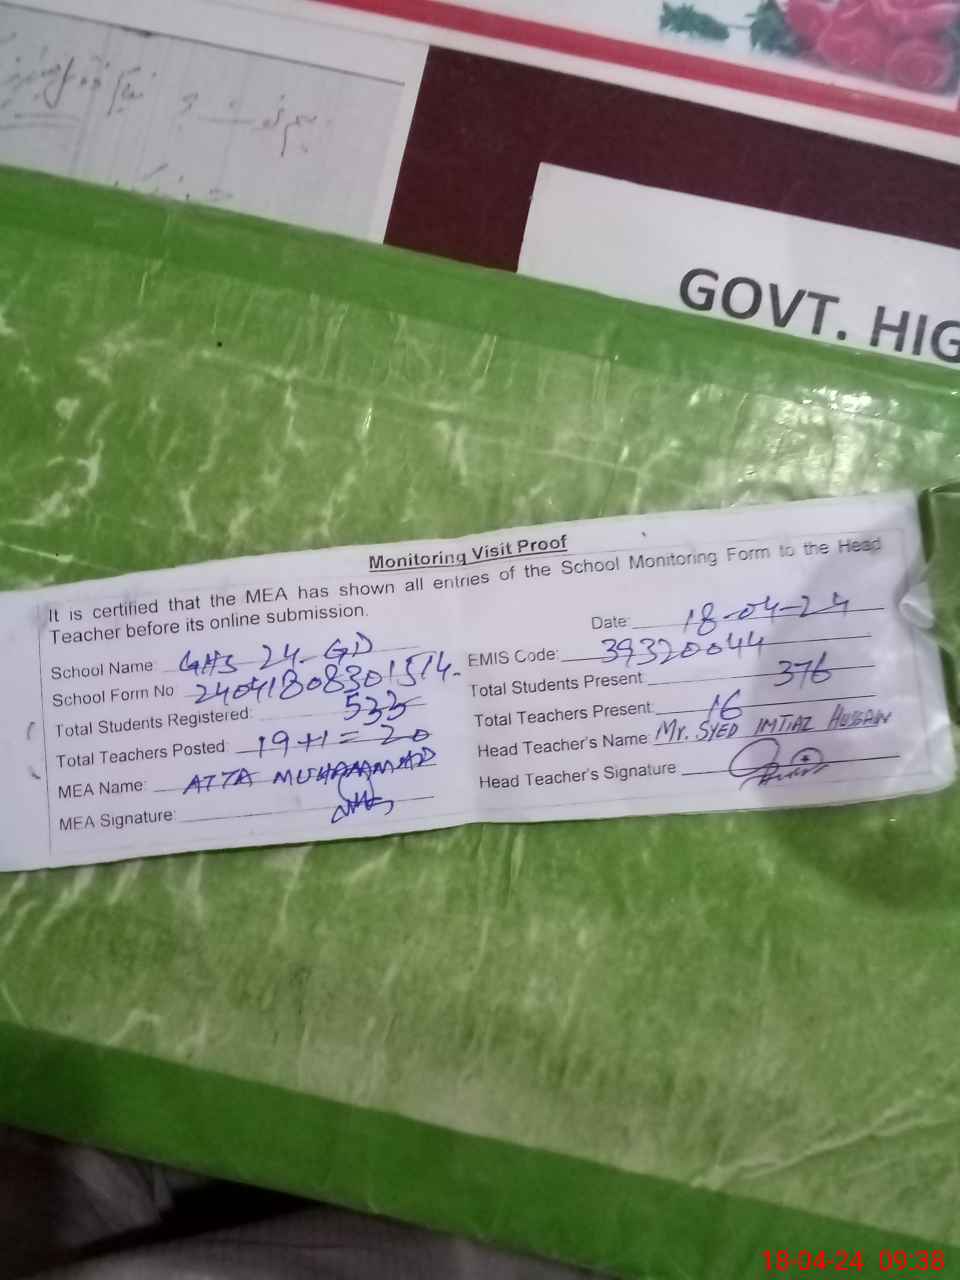 GOVT. HIG
Monitoring Visit Proof
It is certified that the MEA has shown all entries of the School Monitoring Form to the Head
Teacher before its online submission.
Date: 18-04-24
School Name: GHS 24-GD
EMIS Code: 39320044
School Form No 2404180830 1514-
Total Students Present 376
Total Students Registered: 533
Total Teachers Present: 16
Total Teachers Posted: 19+1=20
Head Teacher's Name Mr. SYED IMTIAZ HUSSAIN
MEA Name: ATTA MUHAMMAD
Head Teacher's Signature
MEA Signature:
18-04-24 09:38